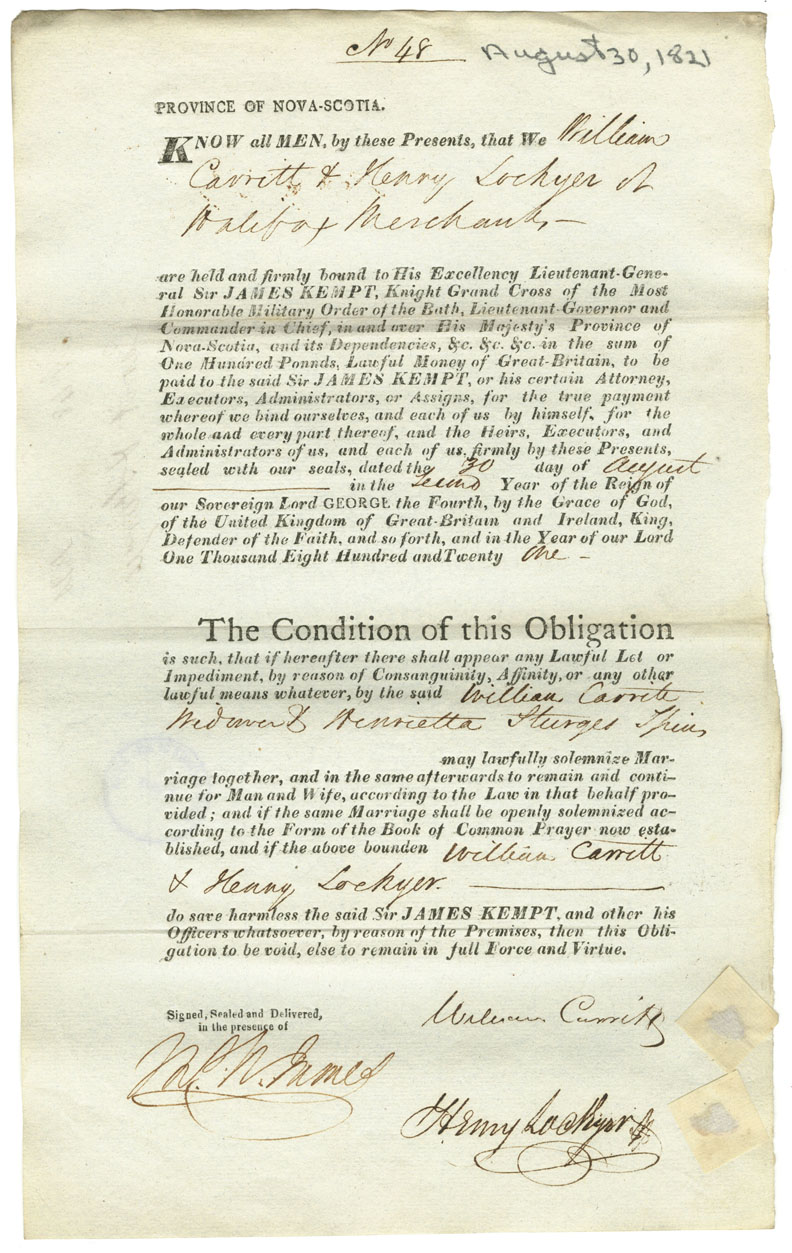 No 48
August 30, 1821
PROVINCE OF NOVA-SCOTIA.
KNOW all MEN, by these Presents, that We William
Carritt & Henry Lockyer of
Halifax Merchants —
are held and firmly bound to His Excellency Lieutenant-Gene-
ral Sir JAMES KEMPT, Knight Grand Cross of the Most
Honorable Military Order of the Bath, Lieutenant-Governor and
Commander in Chief, in and over His Majesty's Province of
Nova-Scotia, and its Dependencies, &c. &c. &c. in the sum of
One Hundred Ponnds, Lawful Money of Great-Britain, to be
paid to the said Sir JAMES KEMPT, or his certain Attorney,
Executors, Administrators, or Assigns, for the true payment
whereof we bind ourselves, and each of us by himself, for the
whole and every part thereof, and the Heirs, Executors, and
Administrators of us, and each of us, firmly by these Presents,
sealed with our seals, dated the 30 day of August
in the Second Year of the Reign of
our Sovereign Lord GEORGE the Fourth, by the Grace of God,
of the United Kingdom of Great-Britain and Ireland, King,
Defender of the Faith, and so forth, and in the Year of our Lord
One Thousand Eight Hundred and Twenty One —
The Condition of this Obligation
is such, that if hereafter there shall appear any Lawful Let or
Impediment, by reason of Consanguinity, Affinity, or any other
lawful means whatever, by the said William Carritt
Widower & Henrietta Sturges
may lawfully solemnize Mar-
riage together, and in the same afterwards to remain and conti-
nue for Man and Wife, according to the Law in that behalf pro-
vided; and if the same Marriage shall be openly solemnized ac-
cording to the Form of the Book of Common Prayer now esta-
blished, and if the above bounden William Carritt
& Henry Lockyer.
do save harmless the said Sir JAMES KEMPT, and other his
Officers whatsoever, by reason of the Premises, then this Obli-
gation to be void, else to remain in full Force and Virtue.
Signed, Sealed and Delivered,
in the presence of
William Carritt
James
Henry Lockyer